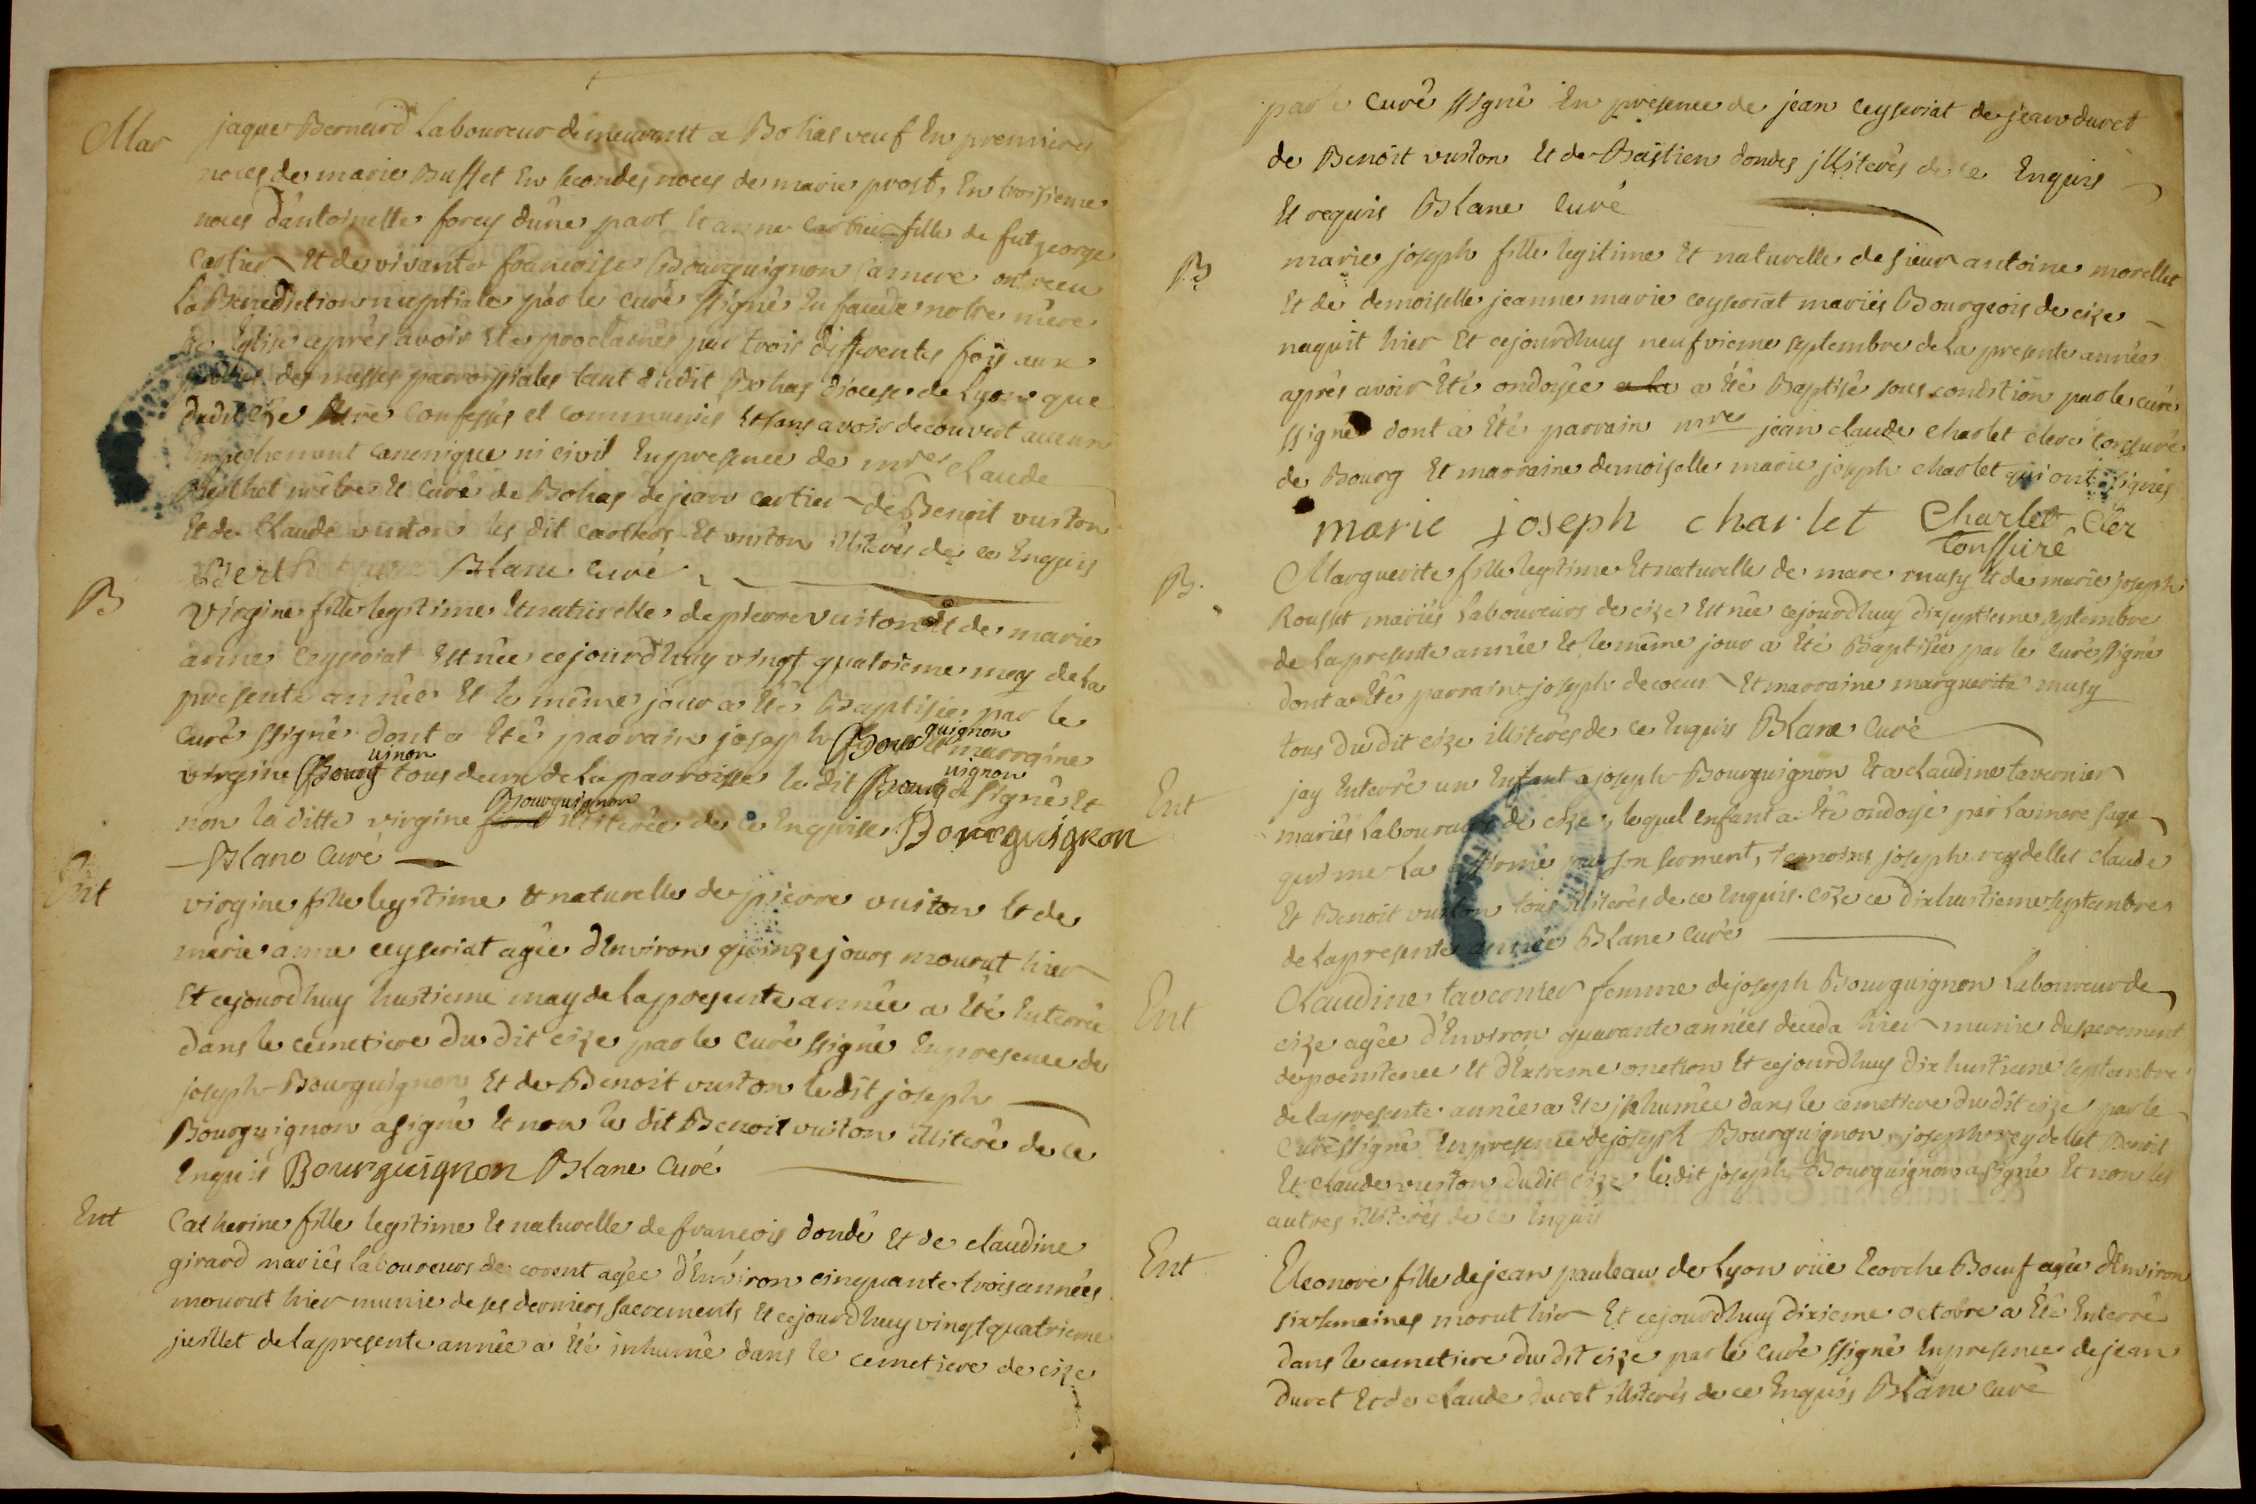 Mar
jaque Bernard Laboureur demeurant a Bohas veuf En premieres
noces de marie Buffet En secondes noces de marie prost, En troisieme
noces d'antoinette forey d'une part Et anne Cartier fille de fut george
Cartier Et de vivante francoise Bourguignon sa mere ont receu
La Benediction nuptiale par le curé ssigné En face de notre mere
Ste Eglise aprés avoir Eté proclamés par trois differentes fois aux
des messes parroissiales tant dudit Bohas diocese de Lyon que
dudit cize Etre confessés et communiés Et sans avoir decouvert aucun
Empechement canonique ni civil En presence de mres Claude
Berthet prêtre Et curé de Bohas de jean cartier de Benoit vuiton
Et de Claude vuiton les dit cartiers Et vuiton illiterés de ce Enquis
Berthet Blanc curé
B
Virgine fille legitime Et naturelle de pierre vuiton Et de marie
anne ceyseriat Est née cejourdhuy vingt quatrieme may de La
presente année Et le même jour a Eté Baptisée par le
curé ssigné dont a Eté parrain joseph Bourguignon Et marraine
virgine Bourguinon tous deux de La parroisse le dit Bourguignon a signé Et
non la ditte virgine Bourguignon illiterée de ce Enquise Bourguignon
Blanc Curé
Ent
virgine fille legitime Et naturelle de pierre vuiton Et de
marie anne ceyseriat agée d'Environ quinze jours mourut hier
Et cejourdhuy huitieme may de La presente année a Eté Enterrée
dans le cemetiere du dit cize par le Curé ssigné En presence de
joseph Bourguignon Et de Benoit vuiton le dit joseph
Bourguignon a signé Et non le dit Benoit vuiton illiteré de ce
Enquis Bourguignon Blanc Curé
Ent
Catherine fille legitime Et naturelle de francois dondé Et de claudine
girard mariés laboureurs de corent agée d'Environ cinquante trois années
mourut hier munie de ses derniers sacrements Et cejourdhuy vingt quatrieme
juillet de la presente année a Eté inhumé dans le cemetiere de cize
par le Curé ssigné En presence de jean ceyseriat de jean duret
de Benoit vuiton Et de Bastien dondes illiterés de ce Enquis
Et requis Blanc Curé
B
marie joseph fille legitime Et naturelle de sieur antoine morellet
Et de demoiselle jeanne marie ceyseriat mariés Bourgeois de cize
naquit hier Et cejourdhuy neufvieme septembre de La presente année
aprés avoir Eté ondoyée a la a Eté Baptisé sous condition par le curé
ssigné dont a Eté parrain mre jean claude charlet clerc tonsuré
de Bourg Et marraine demoiselle marie joseph charlet qui ont signés
marie joseph charlet Charlet Cler
Tonssuré
B.
Marguerite fille legitime Et naturelle de marc musy Et de marie joseph
Rousset mariés Laboureurs de cize Est née cejourdhuy dixseptieme septembre
de La presente année Et le même jour a Eté Baptisée par le curé ssigné
dont a Eté parrain joseph decoeur Et marraine marguerite musy
tous du dit cize illiterés de ce Enquis Blanc Curé
Ent
jay Enterré un Enfant a joseph Bourguignon Et a claudine tavernier
mariés Laboureurs de cize, lequel enfant a Eté ondoyé par La mere sage
qui me La par son serment, temoins joseph reydellet claude
Et Benoit vuiton tous illiterés de ce Enquis. cize ce dixhuitieme septembre
de La presente année Blanc Curé
Ent
Claudine tavernier femme de joseph Bourguignon Laboureur de
cize agée d'Environ quarante années deceda hier munie du sacrement
de poenitence Et d'Extreme onction Et cejourdhuy dixhuitieme septembre
de la presente année a Eté inhumée dans le cemetiere du dit cize par le
Curé ssigné En presence de joseph Bourguignon, joseph reydellet Benoit
Et Claude vuiton du dit cize le dit joseph Bourguignon a signé Et non les
autres illiterés de ce Enquis
Ent
Eleonore fille de jean pauleau de Lyon rüe Ecorche Boeuf agée d'Environ
six semaines morut hier Et cejourdhuy dixieme octobre a Eté Enterré
dans le cemetiere du dit cize par le curé ssigné En presence de jean
duret Et de claude duret illiterés de ce Enquis Blanc Curé